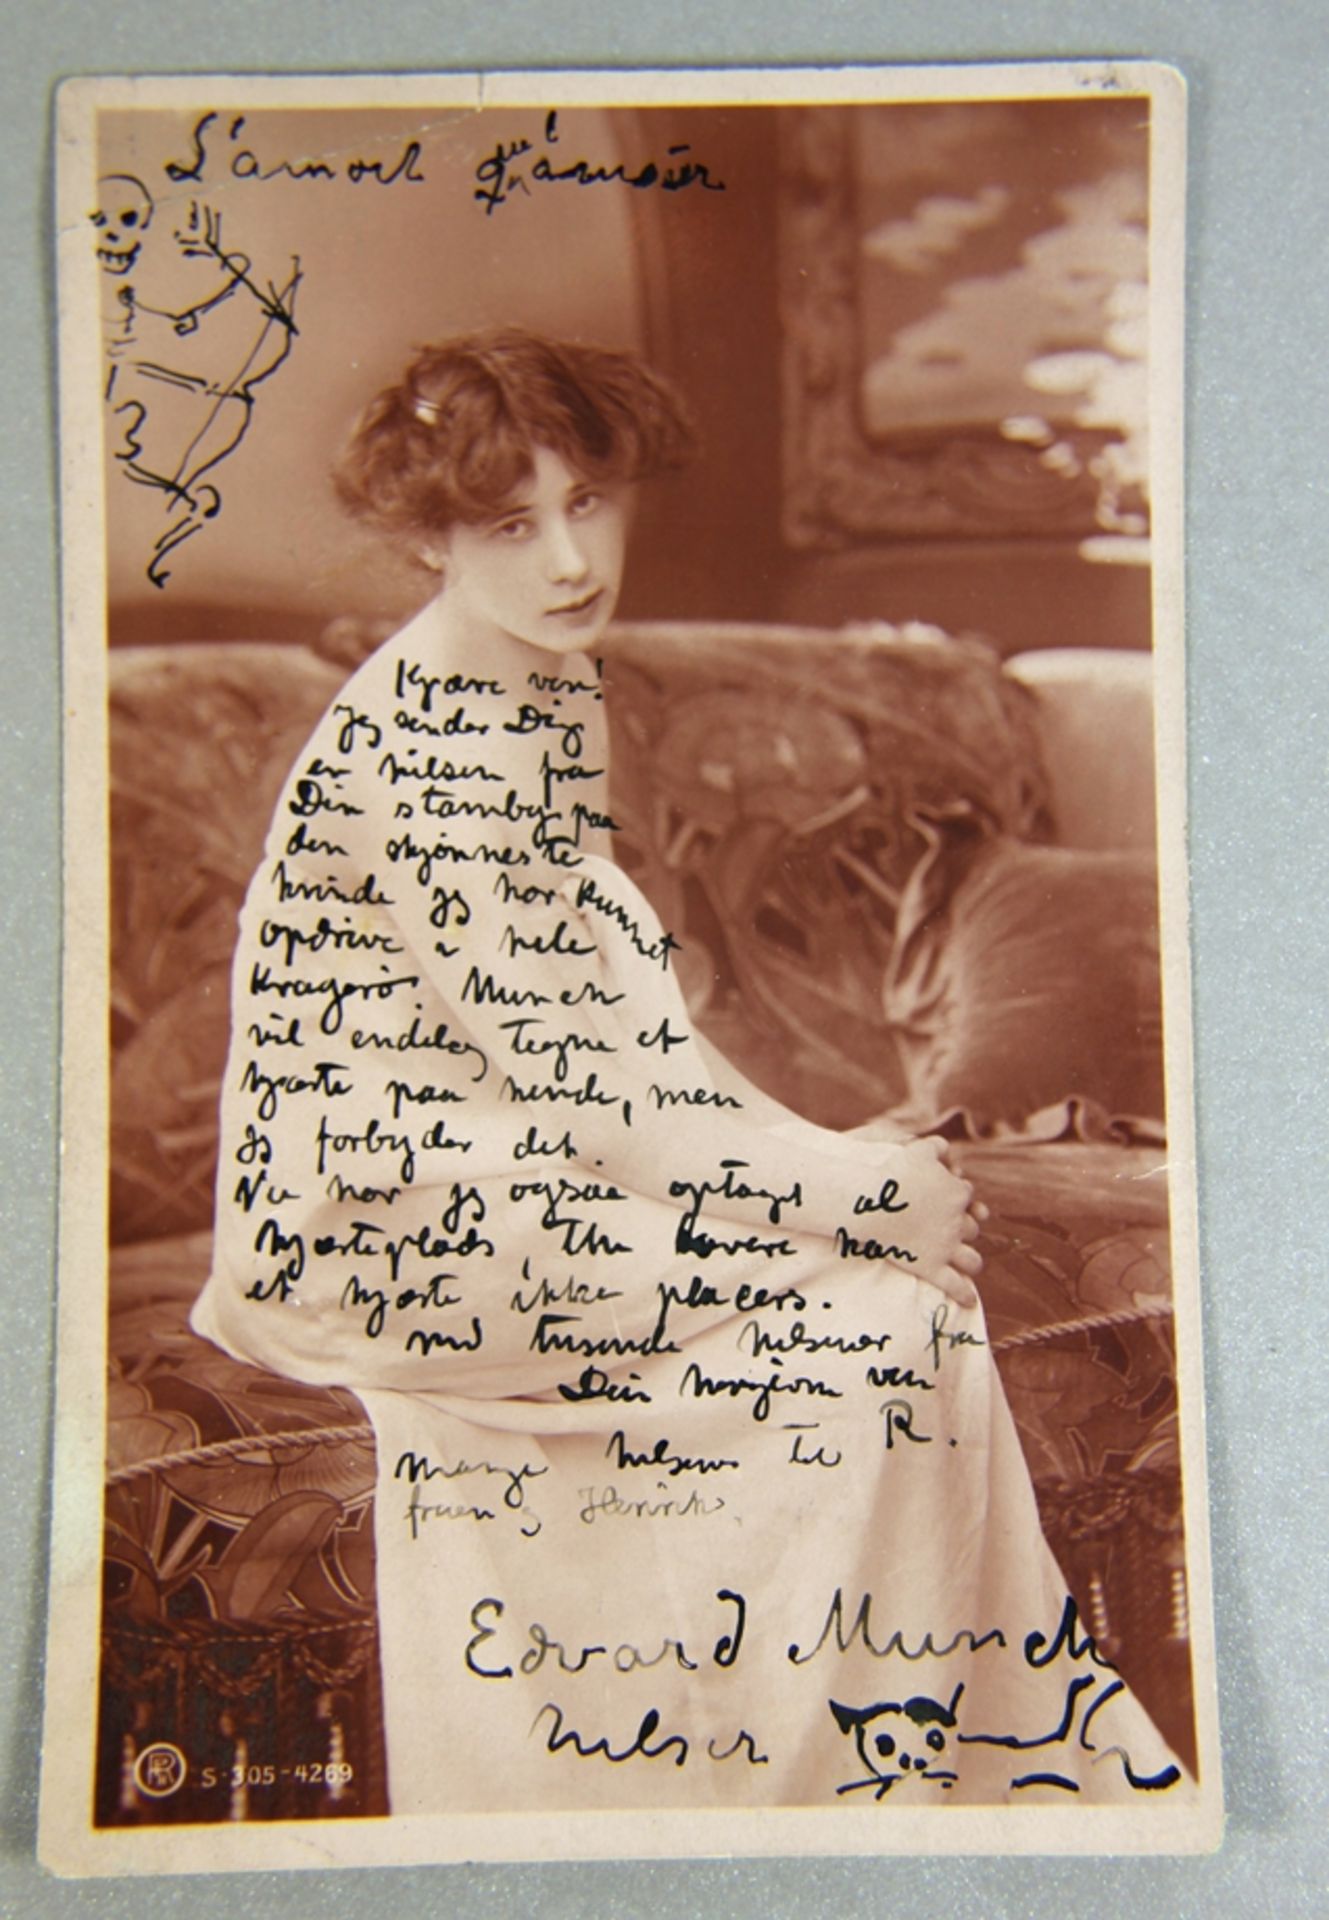 L'amour qu'amour
Kjære ven!
Jeg sender Dig
en hilsen fra
Din stamby paa
den skjønneste
kvinde jeg har kunnet
opdrive i hele
Kragerø. Munch
vil endelig tegne et
hjærte paa hende, men
jeg forbyder det.
Nu har jeg ogsaa optaget al
hjærteplads, Thi kan
et hjærte ikke placers.
med tusende hilsener fra
Din hengivne ven
R.
Mange hilsener til
fruen og Henrik.
Edvard Munch
hilser
R S-305-4269